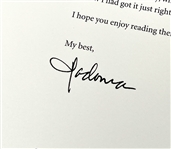 I had got it just right
I hope you enjoy reading the
My best,